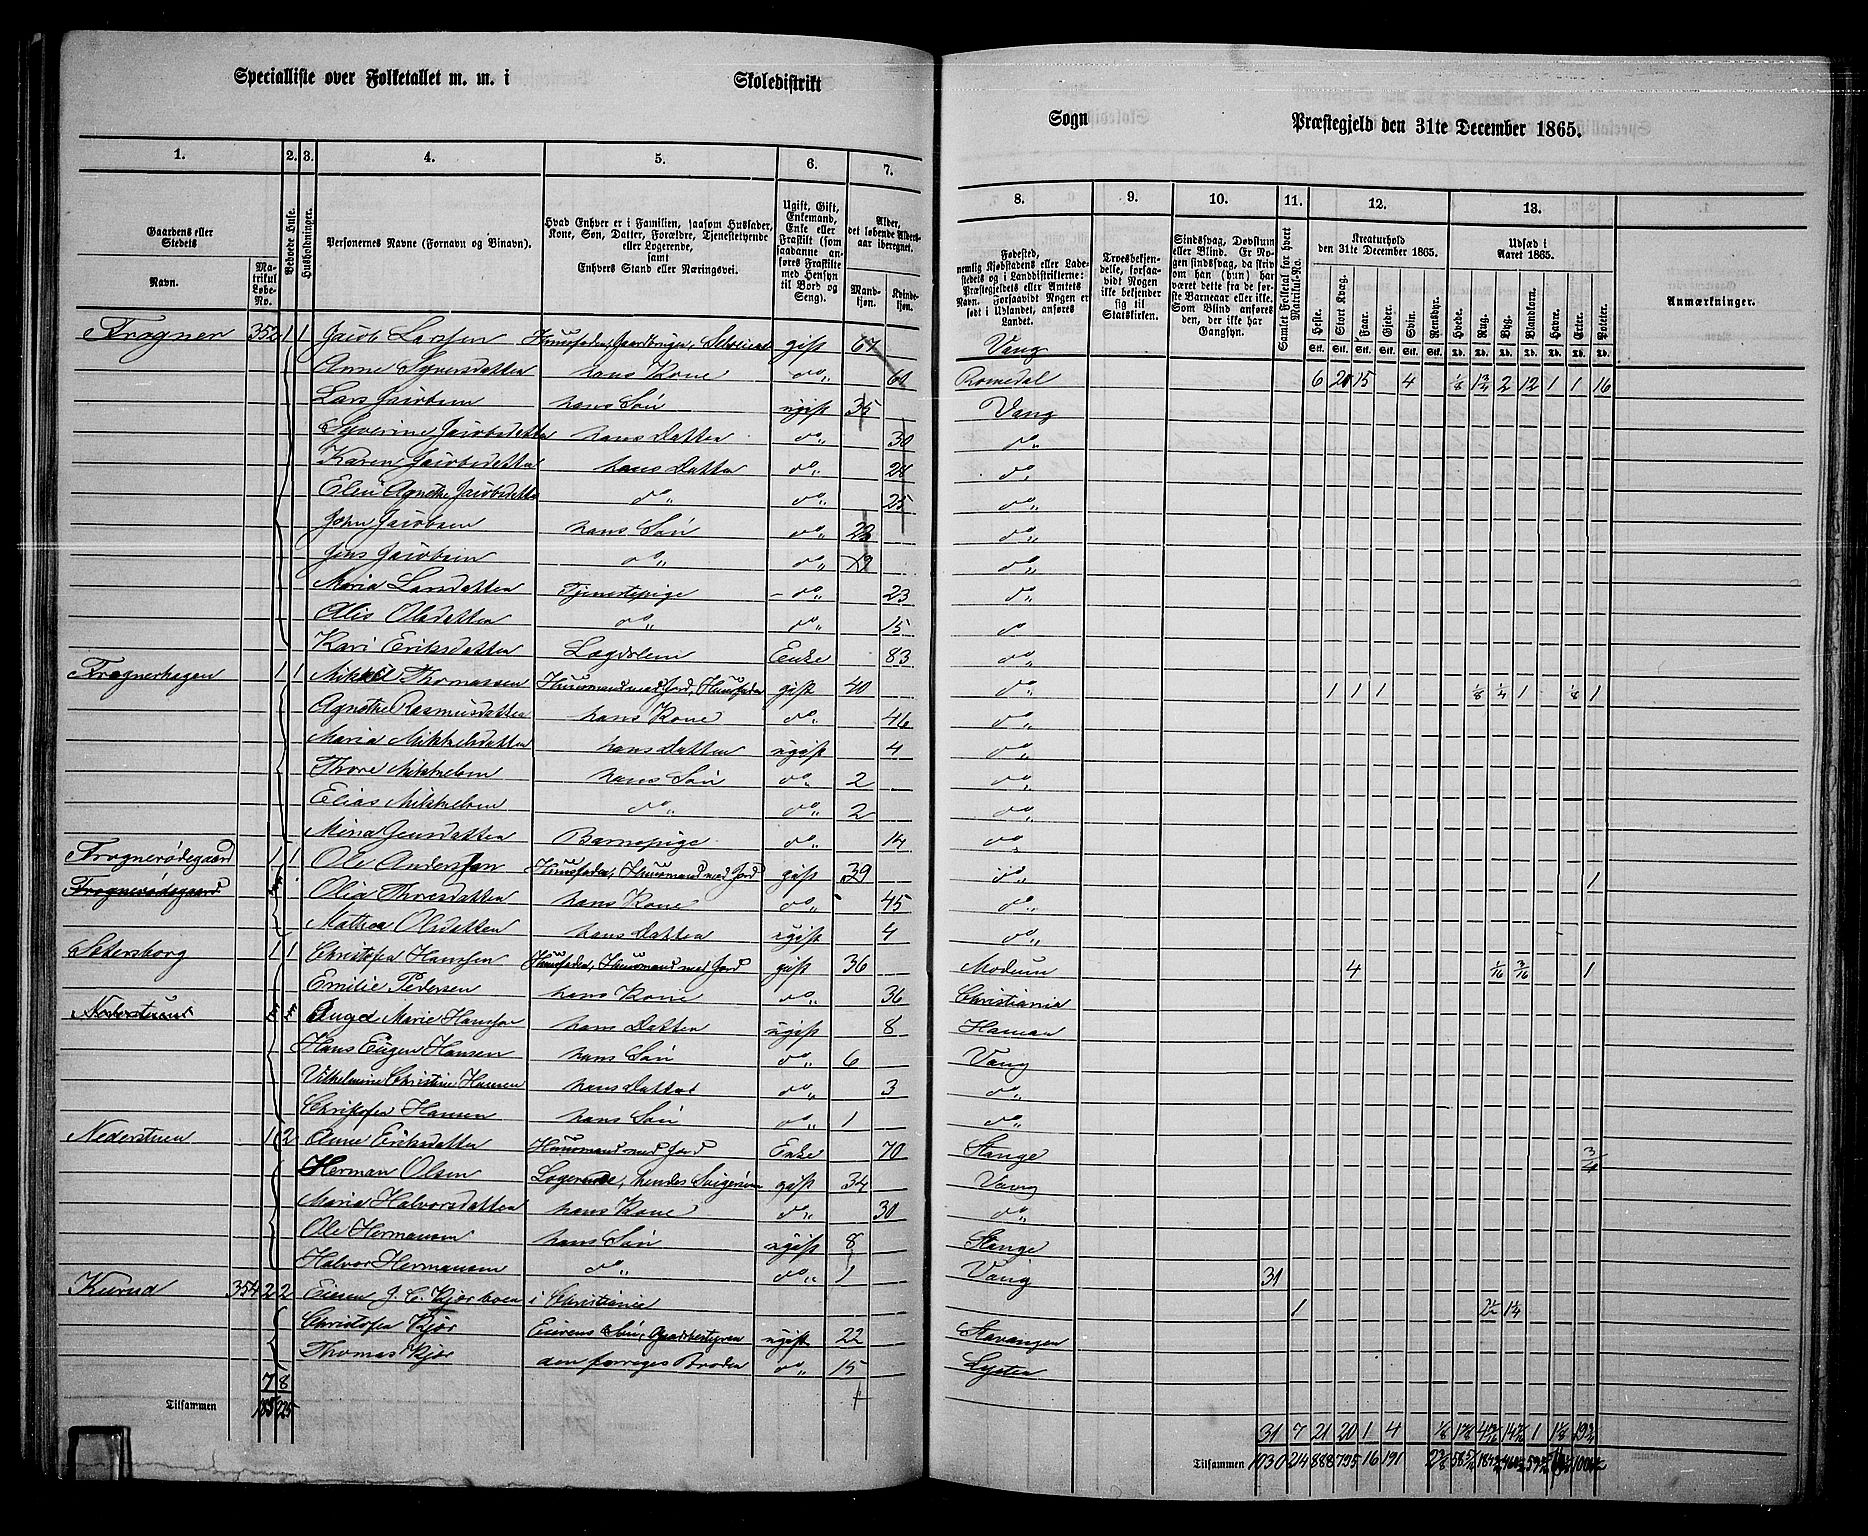 Specialliste over Folketallet m. m. i Skoledistrikt
Sogn Præstegjeld den 31te December 1865.
1. 2. 3. 4. 5. 6. 7. 8. 9. 10. 11. 12. 13.
Gaardens eller Stedets Navn. Matrikul Løbe-No.
Beboede Huse.
Husholdninger.
Personernes Navne (Fornavn og Binavn).
Hvad Enhver er i Familien, saasom Husfader, Kone, Søn, Datter, Forældre, Tjenestetyende eller Logerende, samt Enhvers Stand eller Næringsvei.
Ugift, Gift, Enkemand, Enke eller Fraskilt (som saadanne anføres Fraskilte med Hensyn til Bord og Seng).
Alder, det løbende Aldersaar iberegnet. Mandkjøn. Kvindekjøn.
Fødested, nemlig Kjøbstadens eller Ladestedets og i Landdistrikterne: Præstegjeldets eller Amtets Navn. Forsaavidt Nogen er født i Udlandet, anføres Landet.
Troesbekjendelse, forsaavidt Nogen ikke bekjender sig til Statskirken.
Sindssvag, Døvstum eller Blind. Er Nogen sindssvag, da skriv om han (hun) har været dette fra de første Barneaar eller ikke. Som Blind anføres den, der ikke har Gangsyn.
Samlet Folketal for hvert Matrikul-No.
Kreaturhold den 31te December 1865. Heste. Stort Kvæg. Faar. Gjeder. Svin. Rensdyr.
Udsæd i Aaret 1865. Hvede. Rug. Byg. Blandkorn. Havre. Erter. Poteter.
Anmærkninger.
Stk. Stk. Stk. Stk. Stk. Stk. Td. Td. Td. Td. Td. Td. Td.
Frogner 352 1 1 Jacob Larsen gift 67 Vang
Anne Syversdatter hans Kone do 61 Romedal 6 20 15 4 1/8 1 3/4 2 12 1 1 16
Lars Jacobsen hans Søn ugift 35 Vang
Syverine Jacobsdatter hans Datter do 30 do
Karen Jacobsdatter hans Datter do do
Elen Agnethe Jacobsdatter do do 25 do
John Jacobsen hans Søn do do
Jens Jacobsen do do do
Maria Larsdatter Tjenestepige do 23 do
Olsdatter do do 15 do
Kari Eriksdatter Lægdslem Enke 83 do
Frognerhagen 1 1 Mikkel Thomassen Huusmand med Jord, Huusfader gift 40 do 1 1 1 1/8 1/4 1 1/8 1
Agnethe Rasmusdatter hans Kone do 46 do
Maria Mikkelsdatter hans Datter ugift 4 do
Thore Mikkelsen hans Søn do 2 do
Elias Mikkelsen do do 2
Jensdatter Barnepige do 14 do
Frognerødegaard 1 1 Ole Anderssen Huusfader, Huusmand med Jord gift 39 do
Frognerødegaard Olia Thoresdatter hans Kone do 45 do 1
Mathea Olsdatter hans Datter ugift 4 do
1 1 Christofer Hanssen Huusfader, Huusmand med Jord gift 36 Modum 4 1/16 3/16 1
Emilie Pedersen hans Kone do 36 Christiania
Nederstuen Marie Hanssen hans Datter ugift 8 Hamar
Hans Eugen Hansen hans Søn do 6 Vang
Vilhelmine Christine Hansen hans Datter do 3 do
Christofer Hansen hans Søn do 1 do
Nederstuen 1 2 Anne Eriksdatter Huusmand med Jord Enke 70 Stange 3/4
Herman Olsen Logerende, hendes Svigersøn gift 34 Vang
Maria Halvorsdatter hans Kone do 30 do
Ole Hermansen hans Søn ugift 8 Stange
Halvor Hermansen do do 1 Vang 31
Kurud 354 2 2 Eieren J. C. Kjær boer i Christiania 1 2 1/2 1 1/4
Christofer Kjær Eierens Søn, Gaardbestyrer ugift 22 Stavanger
Thomas Kjær den forriges Broder do 15 Lyster
7 8
Tilsammen 185 225
31 7 21 20 1 4
Tilsammen 1030 24 888 795 16 191